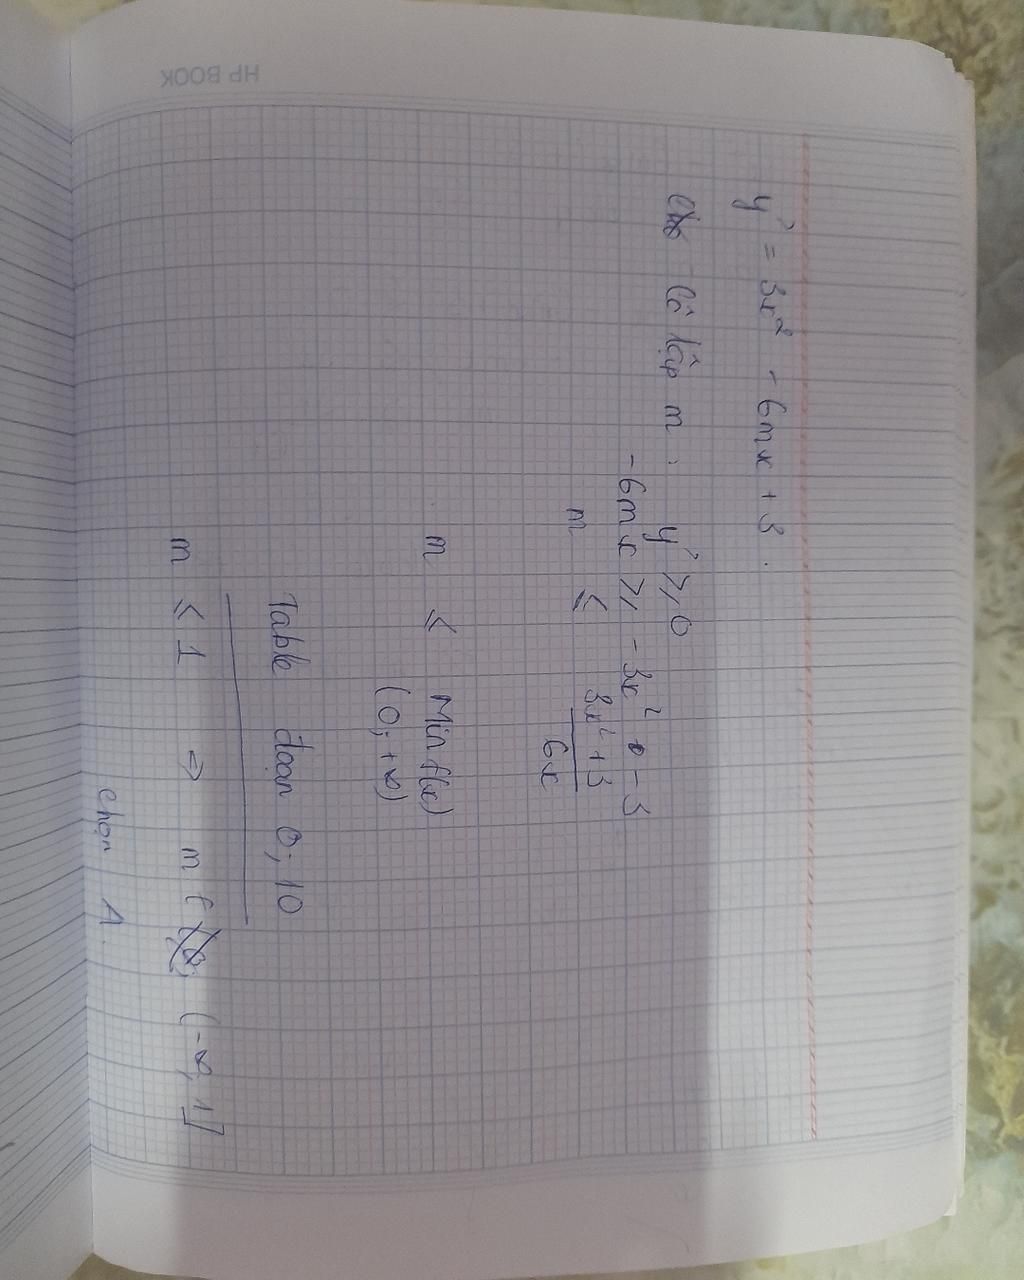 HP BOOK
y' = 3x² - 6mx + 3.
Cô lập m : y' ≥ 0
-6mx ≥ -3x² - 3
m ≤ \frac{3x² + 3}{6x}
m ≤ Min f(x)
(0; +∞)
Table đoạn 0; 10
m ≤ 1 => m ∈ (-∞; 1]
chọn A.